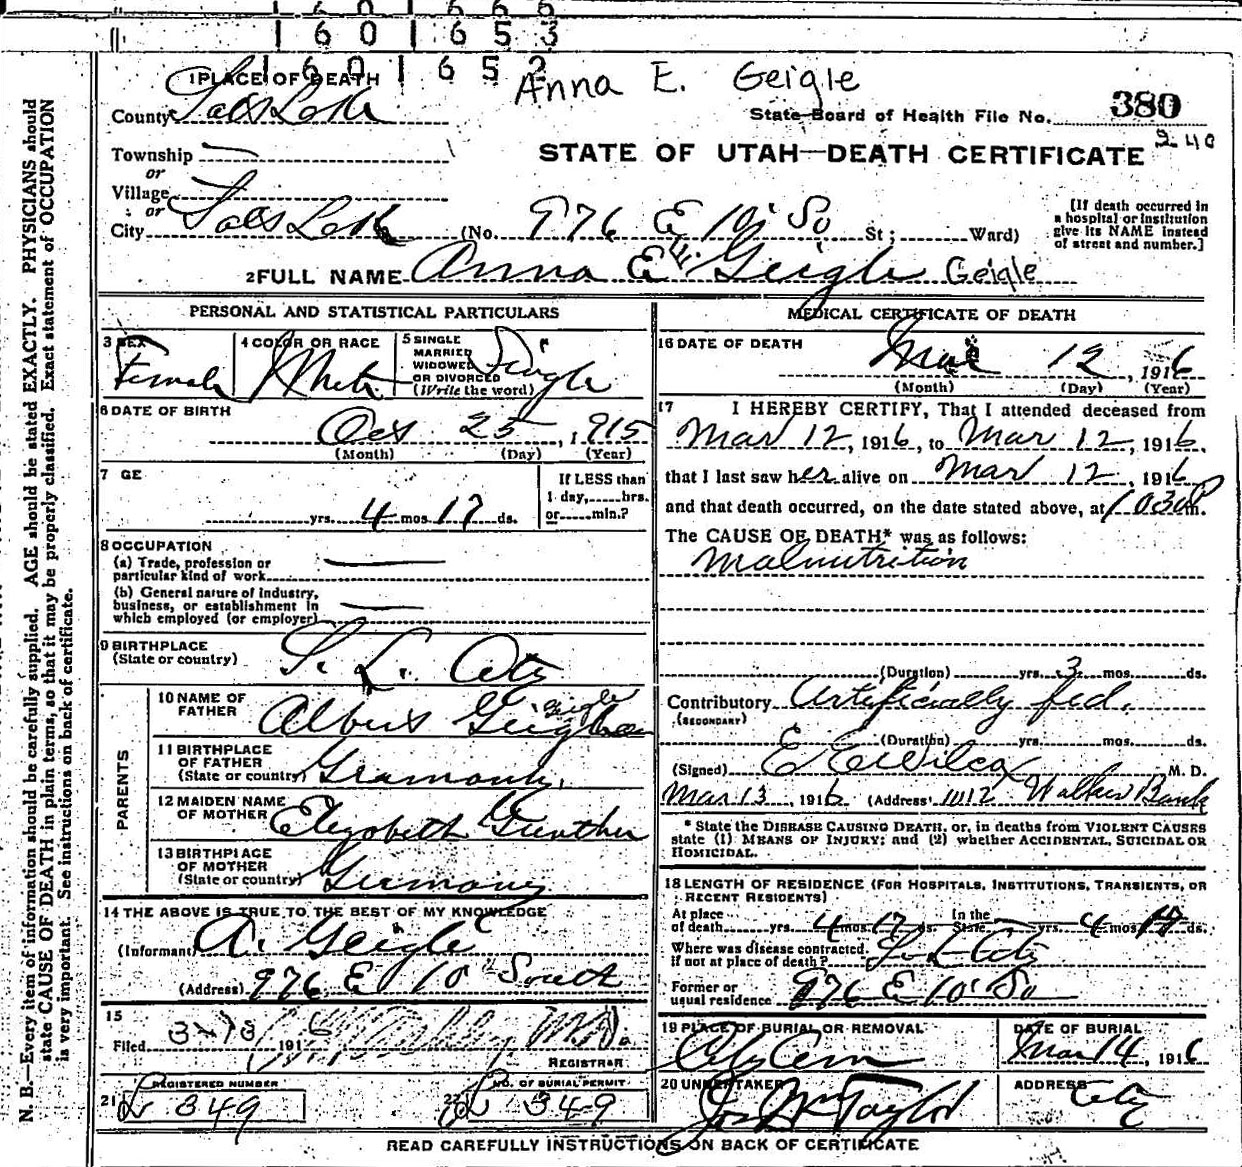 1 6 0 1 6 5 3
1 6 0 1 6 5 2
Anna E. Geigle
1 PLACE OF DEATH
County Salt Lake
State Board of Health File No. 380
240
Township
or
Village
or
City Salt Lake (No. 976 E 10 So St; Ward)
STATE OF UTAH—DEATH CERTIFICATE
[If death occurred in a hospital or institution give its NAME instead of street and number.]
2 FULL NAME Anna E. Geigle Geigle
PERSONAL AND STATISTICAL PARTICULARS
3 SEX Female
4 COLOR OR RACE White
5 SINGLE MARRIED WIDOWED OR DIVORCED (Write the word) Single
6 DATE OF BIRTH
Oct 25, 1915
(Month) (Day) (Year)
7 GE
yrs. 4 mos 17 ds.
If LESS than 1 day, hrs. or min.?
8 OCCUPATION
(a) Trade, profession or particular kind of work
(b) General nature of industry, business, or establishment in which employed (or employer)
9 BIRTHPLACE (State or country) S. L. City
PARENTS
10 NAME OF FATHER Albert Geigle
11 BIRTHPLACE OF FATHER (State or country) Germany
12 MAIDEN NAME OF MOTHER Elizabeth Gunther
13 BIRTHPLACE OF MOTHER (State or country) Germany
14 THE ABOVE IS TRUE TO THE BEST OF MY KNOWLEDGE
(Informant) A. Geigle
(Address) 976 E 10th South
15
Filed 3-13 1916 M.D.
REGISTRAR
21 REGISTERED NUMBER L 349
22 NO. OF BURIAL PERMIT L 349
MEDICAL CERTIFICATE OF DEATH
16 DATE OF DEATH
Mar 12, 1916
(Month) (Day) (Year)
17 I HEREBY CERTIFY, That I attended deceased from
Mar 12, 1916, to Mar 12, 1916
that I last saw her alive on Mar 12, 1916
and that death occurred, on the date stated above, at 1030P m.
The CAUSE OF DEATH* was as follows:
Malnutrition
(Duration) yrs. 3 mos. ds.
Contributory Artificially fed.
(SECONDARY)
(Duration) yrs. mos. ds.
(Signed) E E Wilcox M. D.
Mar 13, 1916 (Address) 1012 Walker Bank
* State the DISEASE CAUSING DEATH, or, in deaths from VIOLENT CAUSES
state (1) MEANS OF INJURY; and (2) whether ACCIDENTAL, SUICIDAL OR
HOMICIDAL.
18 LENGTH OF RESIDENCE (FOR HOSPITALS, INSTITUTIONS, TRANSIENTS, OR
RECENT RESIDENTS)
At place of death yrs. 4 mos. 17 ds. In the State yrs. 4 mos 17 ds.
Where was disease contracted, if not at place of death?
Former or usual residence 976 E 10 So
19 PLACE OF BURIAL OR REMOVAL City Cem
DATE OF BURIAL Mar 14, 1916
20 UNDERTAKER Jos Wm Taylor
ADDRESS City
READ CAREFULLY INSTRUCTIONS ON BACK OF CERTIFICATE
N. B.—Every item of information should be carefully supplied. AGE should be stated EXACTLY. PHYSICIANS should
state CAUSE OF DEATH in plain terms, so that it may be properly classified. Exact statement of OCCUPATION
is very important. See instructions on back of certificate.